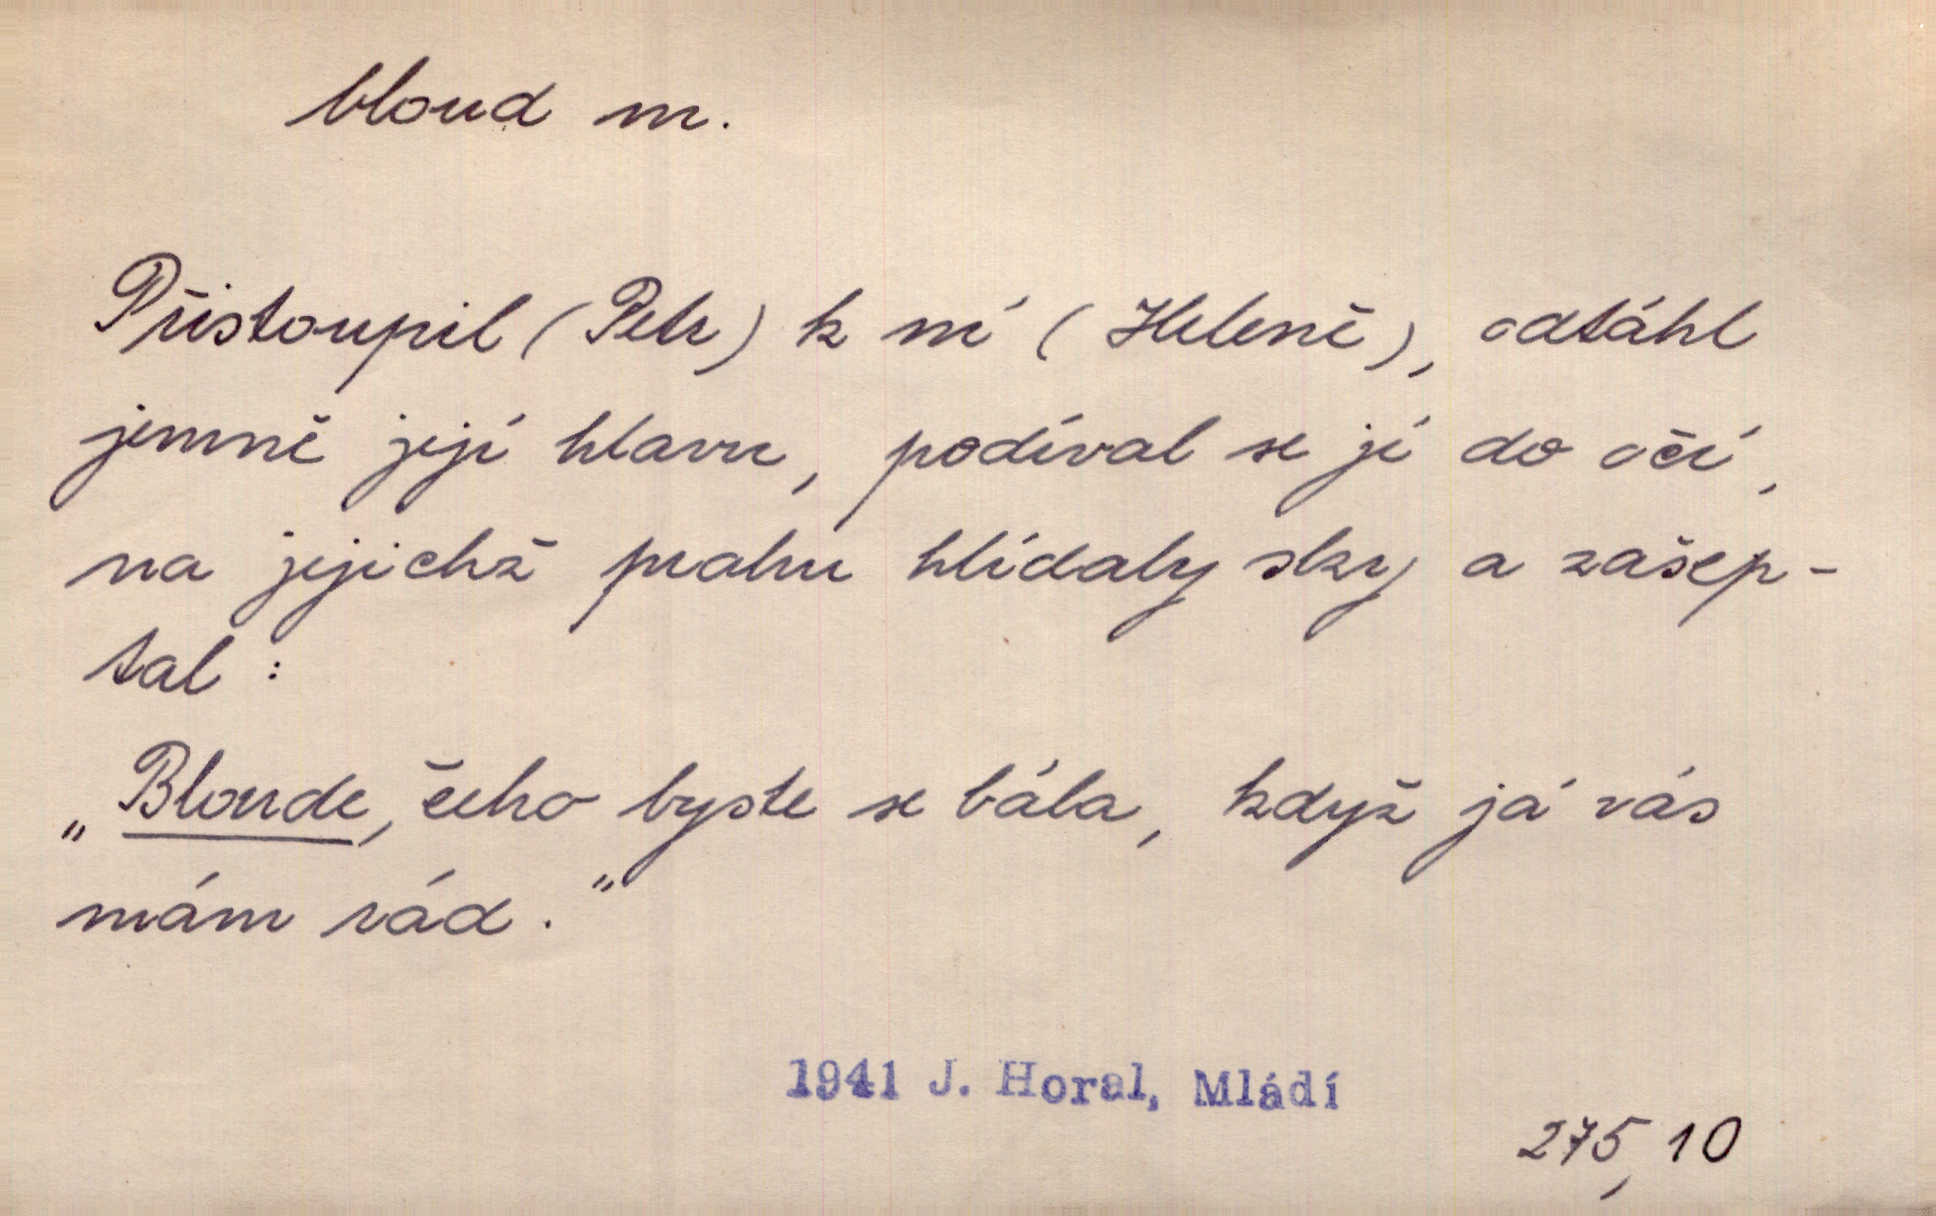 bloud m.
Přistoupil (Petr) k ní (Heleně), odtáhl
jemně její hlavu, podíval se jí do očí,
na jejichž prahu hlídaly slzy a zašep-
tal:
„Bloude, čeho byste se bála, když já vás
mám rád."
1941 J. Horal, Mládí
275,10